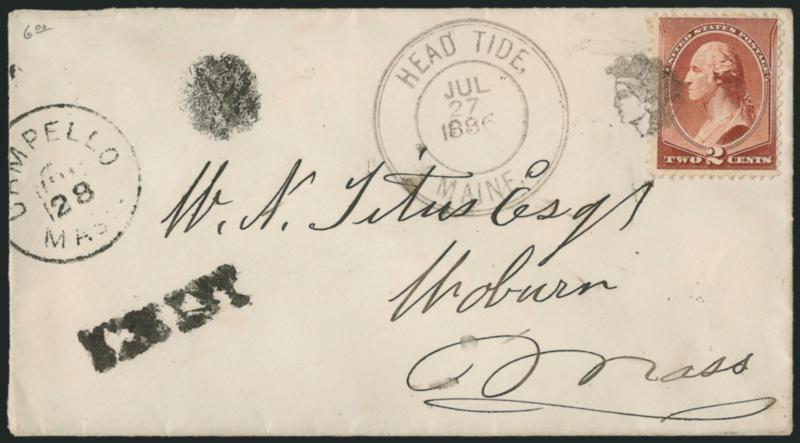 6 00
HEAD TIDE,
JUL
27
1886
MAINE.
UNITED STATES POSTAGE
TWO 2 CENTS
CAMPELLO
28
MASS.
W. N. Titus Esqr
Woburn
Mass